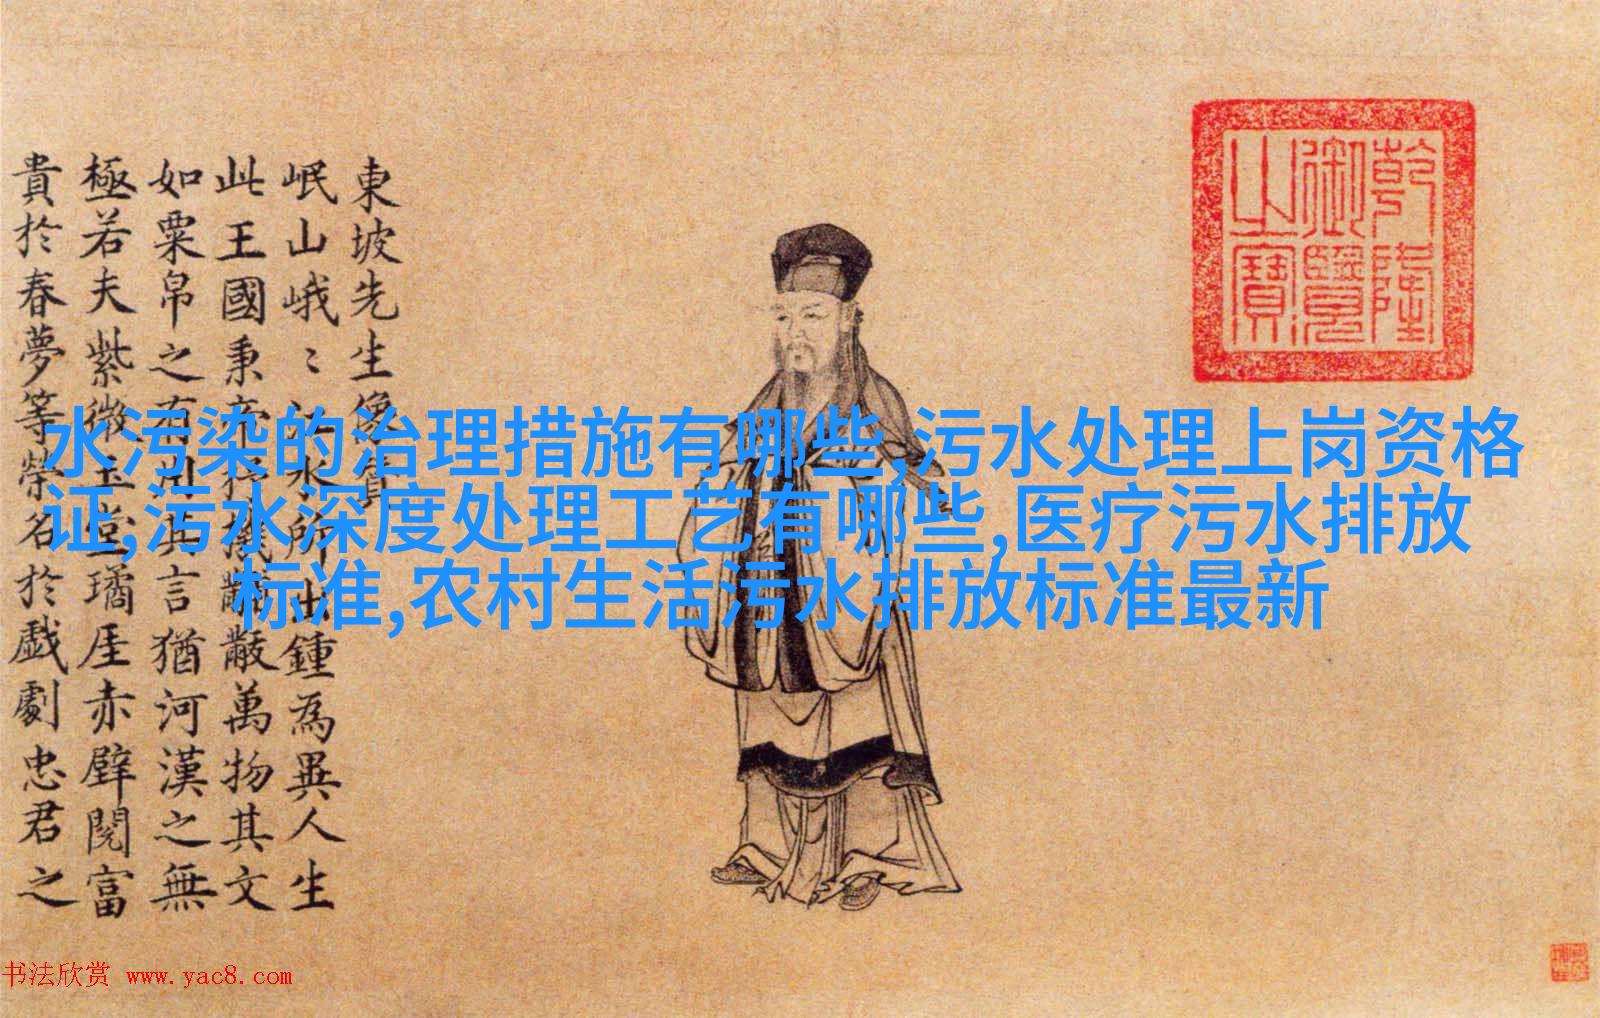 東坡先生像
岷山峨〻江水所出鍾為異人生
此王國秉帝杼機黼黻萬物其文
如粟帛之有用其言猶河漢之無
極若夫紫微玉堂璚厓赤壁閱富
貴於春夢等榮名於戲劇忠君之
乾隆
御覽
之寶
水污染的治理措施有哪些,污水处理上岗资格
证,污水深度处理工艺有哪些,医疗污水排放
标准,农村生活污水排放标准最新
书法欣赏 www.yac8.com